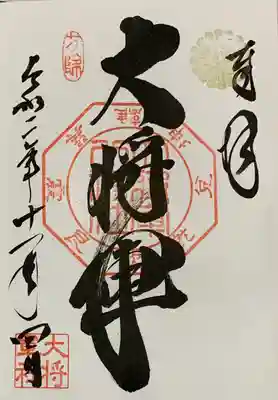 奉拝
方除
大将軍
令和二年十一月四日
大将
軍社